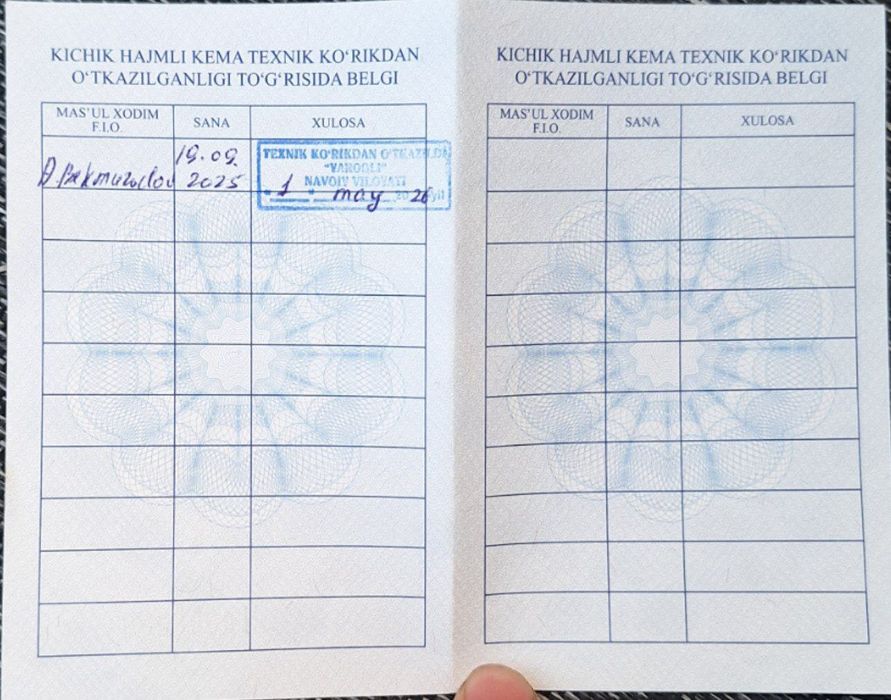 KICHIK HAJMLI KEMA TEXNIK KO‘RIKDAN
O‘TKAZILGANLIGI TO‘G‘RISIDA BELGI
MAS'UL XODIM
F.I.O.
SANA
XULOSA
19.09.
2025
TEXNIK KO‘RIKDAN O‘TKAZILDI
"YAROQLI"
NAVOIY VILOYATI
"1" may 2026 yil
KICHIK HAJMLI KEMA TEXNIK KO‘RIKDAN
O‘TKAZILGANLIGI TO‘G‘RISIDA BELGI
MAS'UL XODIM
F.I.O.
SANA
XULOSA